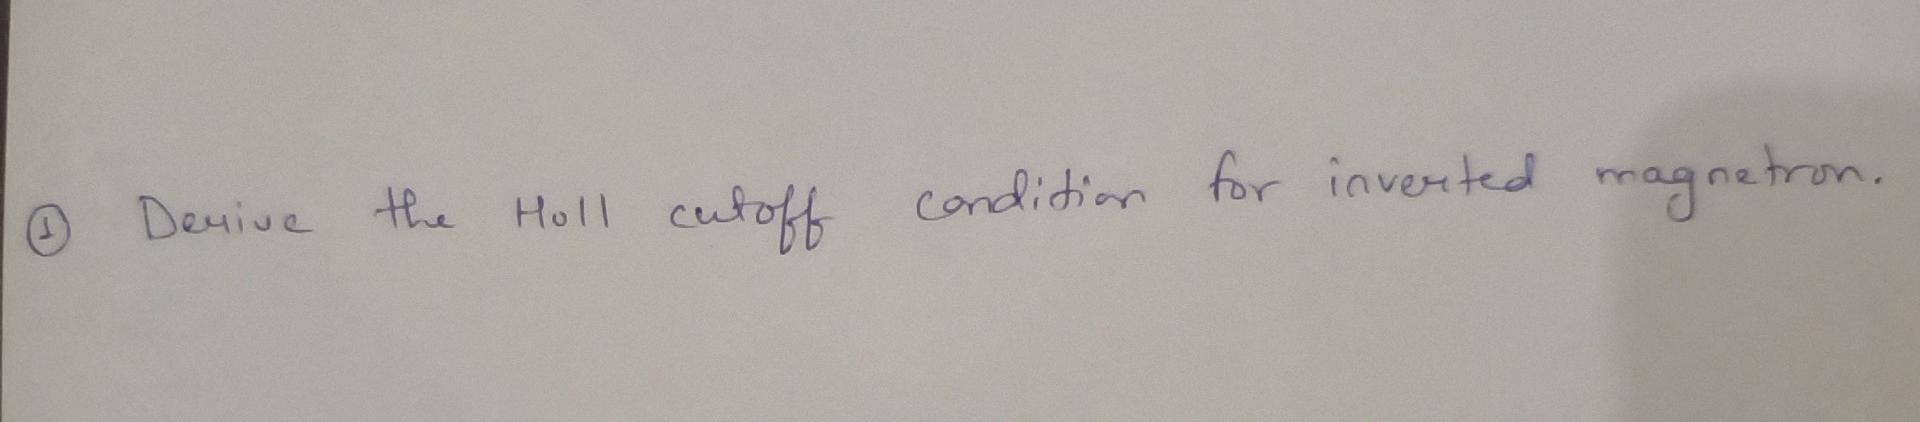 ① Derive the Hull cutoff condition for inverted magnetron.